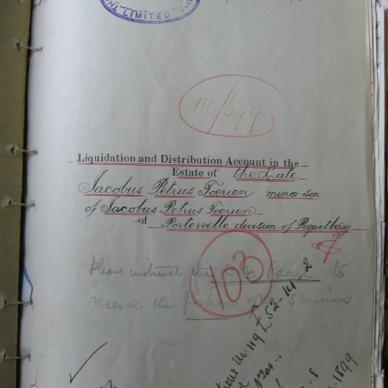 LIMITED
111/699
Liquidation and Distribution Account in the
Estate of the Late
Jacobus Petrus Toerien minor son
of Jacobus Petrus Toerien
of Porterville division of Piquetberg
103
Please instruct the to
receive the of minors
119 £52-14-2
1899